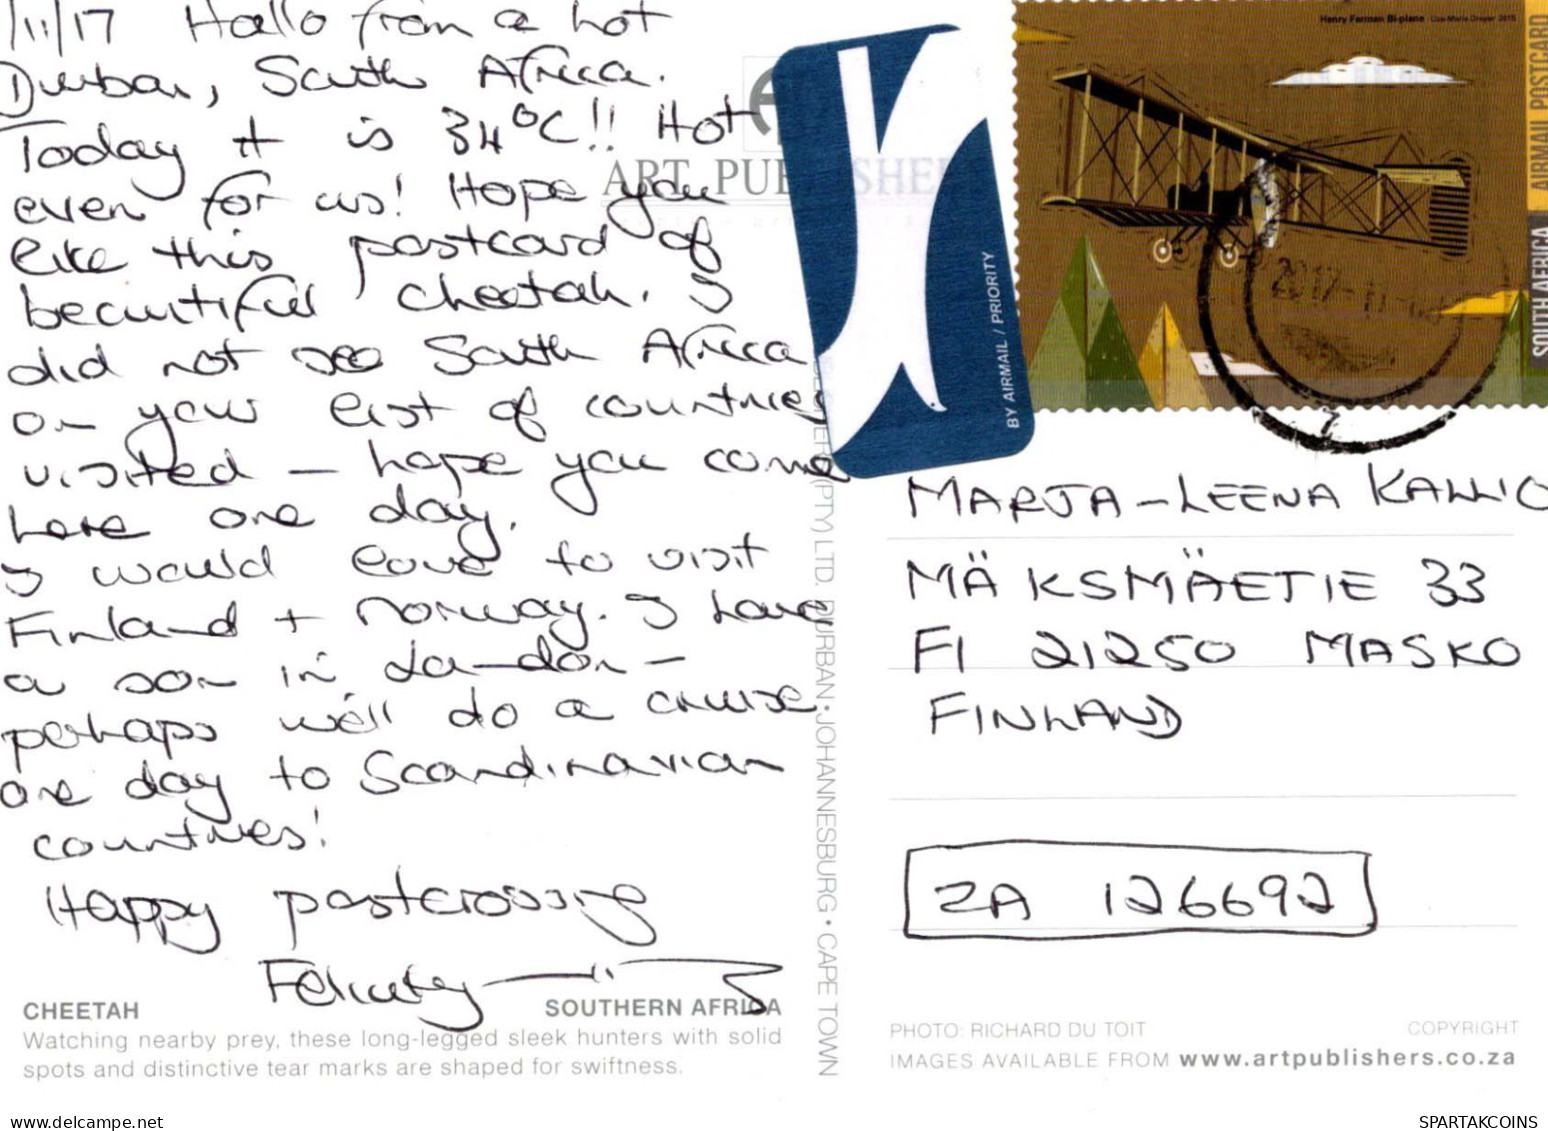 /11/17 Hallo from a hot
Durban, South Africa.
Today it is 34°C!! Hot
even for us! Hope you
like this postcard of
beautiful cheetah. I
did not see South Africa
on your list of countries
visited – hope you come
here one day.
I would love to visit
Finland + Norway. I have
a son in London –
perhaps we'll do a cruise
one day to Scandinavian
countries!
Happy postcrossing
Felicity
CHEETAH SOUTHERN AFRICA
Watching nearby prey, these long-legged sleek hunters with solid
spots and distinctive tear marks are shaped for swiftness.
ART PUBLISHE
(PTY) LTD. DURBAN • JOHANNESBURG • CAPE TOWN
BY AIRMAIL / PRIORITY
Henry Farman Bi-plane Lisa-Marie Dreyer 2015
AIRMAIL POSTCARD
SOUTH AFRICA
2017-11-
MARJA-LEENA KALLIO
MÄKSMÄETIE 33
FI 21250 MASKO
FINLAND
ZA 126692
PHOTO: RICHARD DU TOIT COPYRIGHT
IMAGES AVAILABLE FROM www.artpublishers.co.za
oldthing.net
SPARTAKCOINS